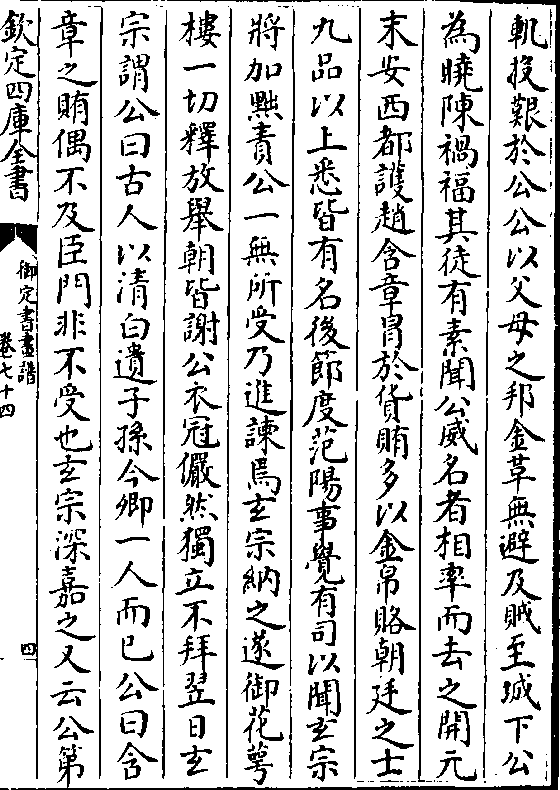 軏投艱於公公以父母之邦金革無避及賊至城下公
為曉陳禍福其徒有素聞公威名者相率而去之開元
末安西都護趙含章冐於貨賄多以金帛賂朝廷之士
九品以上悉皆有名後節度范陽事覺有司以聞玄宗
將加黜責公一無所受乃進諫焉玄宗納之遂御花萼
樓一切釋放舉朝皆謝公衣冠儼然獨立不拜翌日玄
宗謂公曰古人以清白遺子孫今卿一人而已公曰含
章之賄偶不及臣門非不受也玄宗深嘉之又云公第
欽定四庫全書
御定書畫譜
卷七十四
四